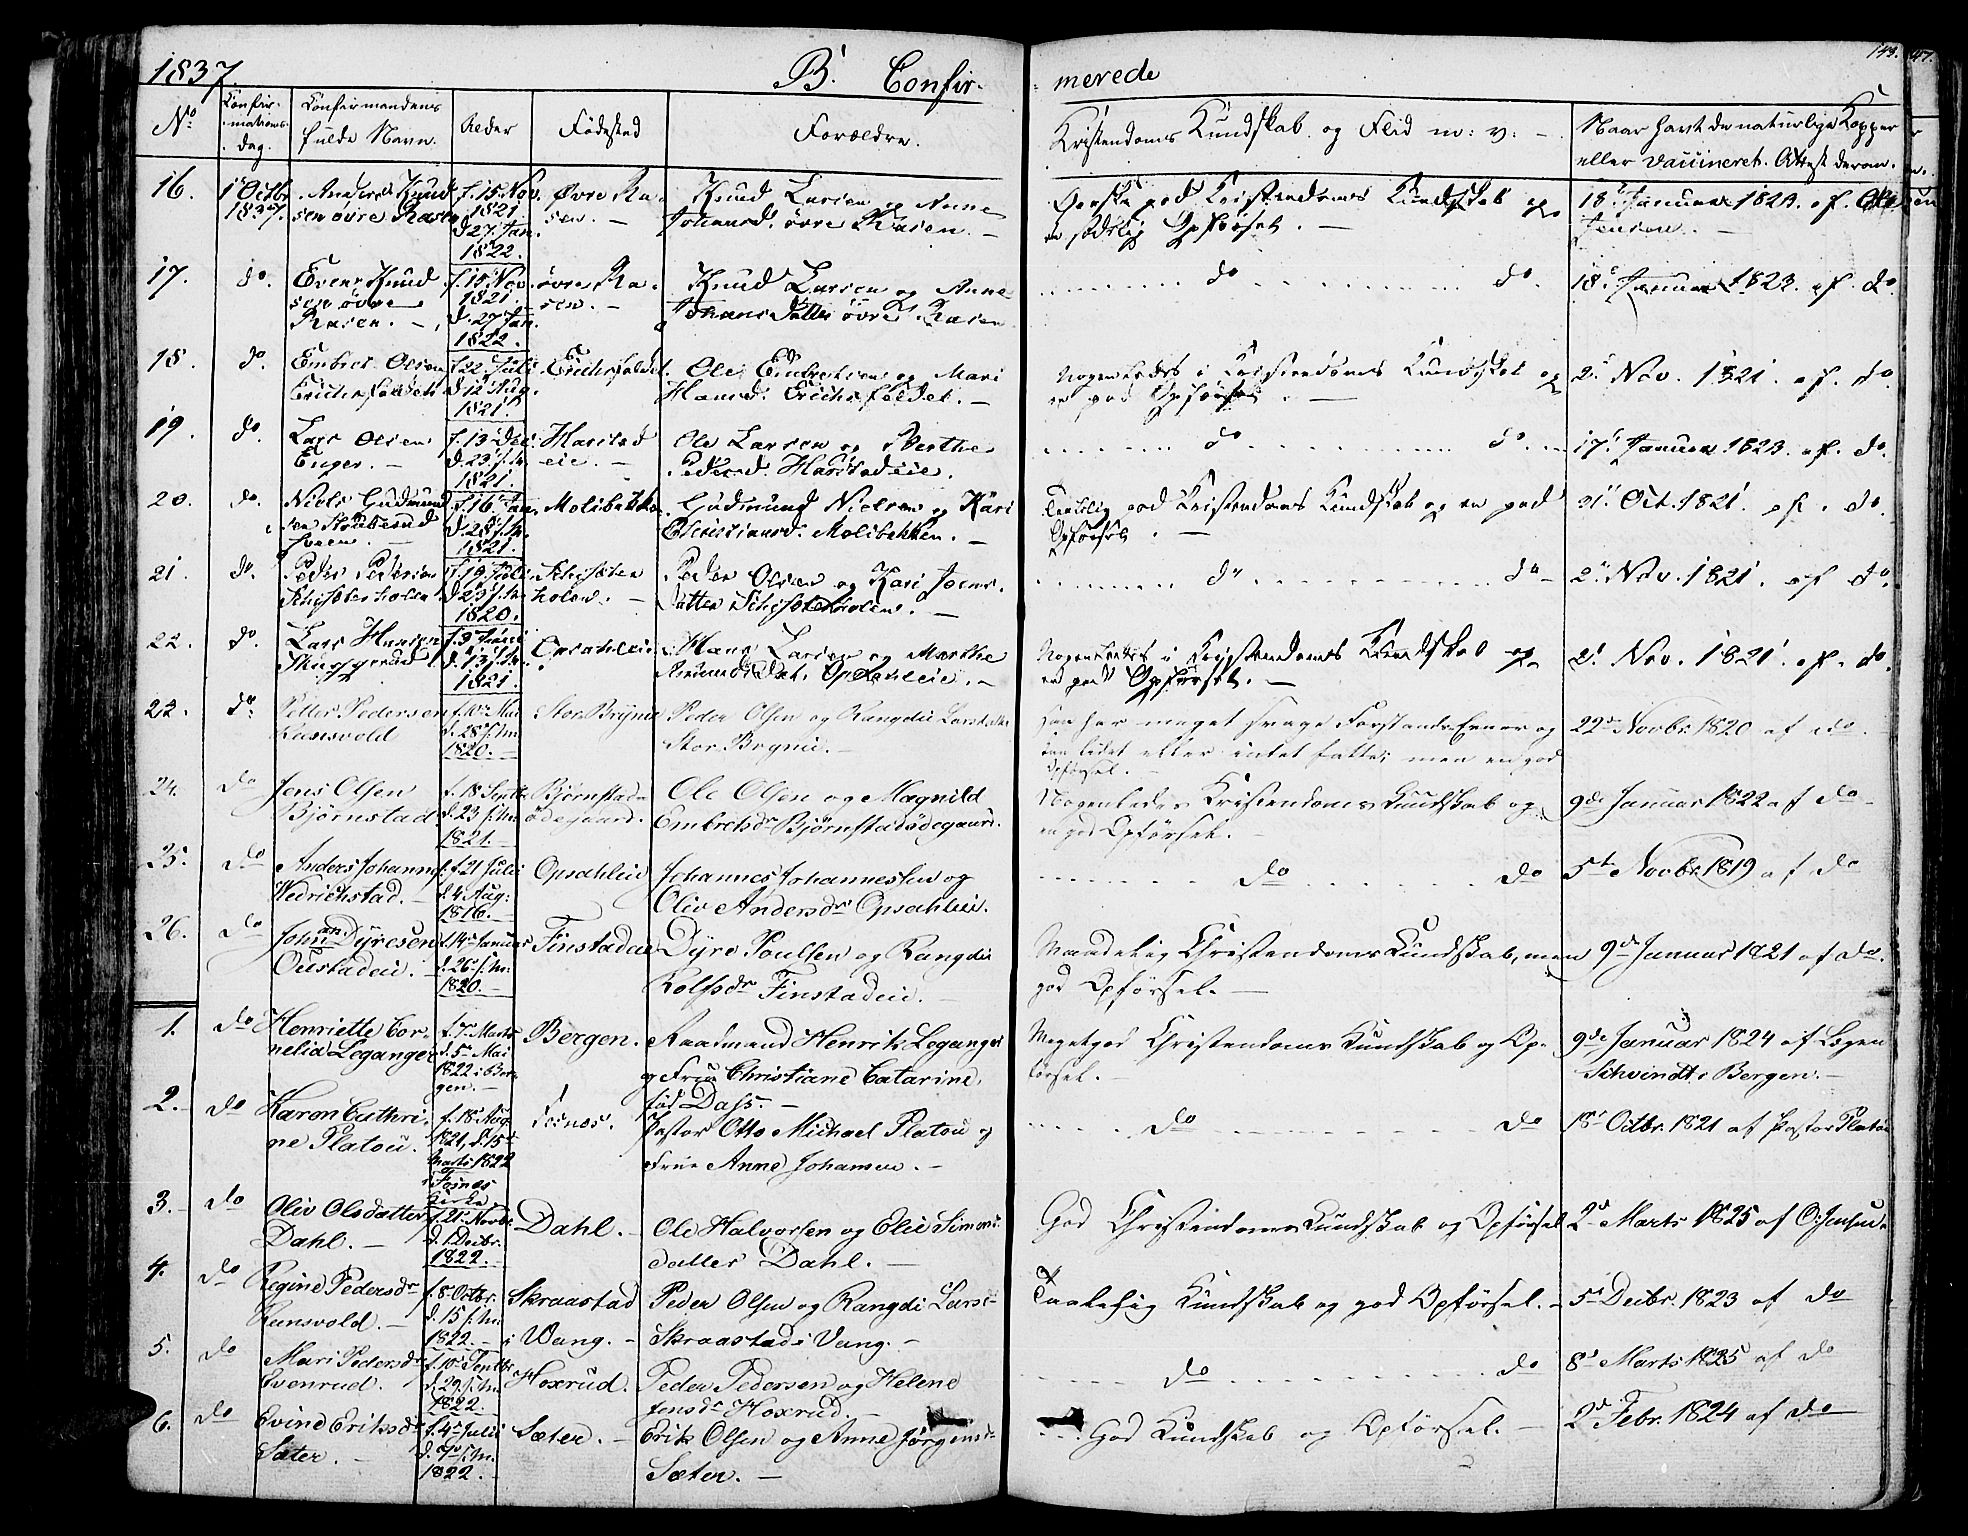 1837. B. Confir- merede 143.
No. Confirmations dag. Confirmandens fulde Navn. Alder Fødested Forældre. Kristendoms Kundskab og Flid m: v: Naar havt de naturlige Kopper eller vaccineret. Attest derom.
16. 1 Octbr 1837. Anders Knudsen øvre Rasen f. 15 Nov. 1821. d. 27 Jan. 1822. Øvre Rasen. Knud Larsen og Anne Johansd. øvre Rasen. Kristendoms Kundskab og Opførsel. 18 Januar 1823. af
17. do. Even Knudsen øvre Rasen. f. 15 Nov. 1821. d. 27 Jan. 1822. øvre Rasen. Knud Larsen og Anne Johans Datter øvre Rasen do do. 18 Januar 1823. af do
18. do. Embret Olsen f. 22 Juli d. 12 Aug. 1821. Ole Embretsen og Mari Hansd. Erichsfeldet. Nogenledes i Kristendoms Kundskab og en god Opførsel. 2 Nov. 1821. af do
19. do. Lars Olsen Enger. f. 13 Dec. d. 23 s. m. 1821. Harstadeie. Ole Larsen og Berthe Pedersd. Harstadeie. do do. 17 Januar 1823. af do.
20. do. Niels Gudmundsen f. 16 Jan. d. 28 s. m. 1821. Molibekken Gudmund Nielsen og Kari Christiansd. Molibekken. Temlig god Kristendoms Kundskab og en god Opførsel. 21 Oct. 1821. af. do.
21. do. Peder Pedersen f. 19 Juli d. 23 s. m. 1820. Peder Olsen og Kari Joens datter do do 2 Nov. 1821. af do.
22. do. Lars Hansen d. 13 s. m. 1821. Opsahleie Hans Larsen og Marthe Opsahleie. Nogenledes i Kristendoms Kundskab og en god Opførsel. 2 Nov. 1821. af. do.
23. do. Petter Pedersen f. 10 Mai d. 28 s. m. 1820. Stor Brynie Peder Olsen og Rangdie Larsdr Stor Brynie. har meget svage Forstands Evner og lidet eller intet fatte; men en god Opførsel. 22 Novbr. 1820 af do.
24. do Jens Olsen Bjørnstad f. 18 Septbr d. 23 s. m. 1821. Bjørnstadødegaard. Ole Olsen og Magnild Embretsdr Bjørnstadødegaard. Nogenledes Kristendoms Kundskab og en god Opførsel. 9de Januar 1822 af do
25. do Anders Johannes. Wedrichstad. f. 21 Juli d. 4 Aug: 1816. Opsahleie Johannes Johannessen og Oliv Andersdr Opsahleie. do do 5te Novbr. 1819 af do
26. do Johan Dyresen Oustadeie. f. 14 Januar d. 26 s. m. 1820. Finstadeie Dyre Poulsen og Rangdi Rolfsdr Finstadeie. Maadelig Christendoms Kundskab, men god Opførsel. 9de Januar 1821 af do.
1. do Henriette Cornelia Leganger f. 7 Marts d. 5 Mai 1822 i Bergen. Bergen. Raadmand Henrik Leganger og Frue Christiane Catarine, fød Dass. Meget god Christendoms Kundskab og Opførsel. 9de Januar 1824 af Lægen Schvindt i Bergen.
2. do Karen Cathrine Platou. f. 18 Aug 1821, d. 15 Marts 1822 i Fosnes Kirke Fosnes. Pastor Otto Michael Platou og Frue Anne Johansen. do do 18 Octbr. 1821 af Pastor Platou
3. do Oliv Olsdatter Dahl. f. 21 Novbr. d. 1 Decbr. 1822. Dahl. Ole Halvorsen og Elie Simonsdatter Dahl. God Christendoms Kundskab og Opførsel 2d Marts 1825 af O: Jensen.
4. do Regine Pedersdr Runsvold. f. 8 Octbr. d. 15 s. m. 1822. Skraastad i Wang. Peder Olsen og Rangdi Larsdr Skraastad i Vang. Taalelig Kundskab og god Opførsel. 5 Decbr. 1823 af do
5. do Mari Pedersdr Evenrud. f. 10 Septbr. d. 29 s. m. 1822. Hoxrud. Peder Pedersen og Helene Jensdr Hoxrud. do do 8 Marts 1825 af do
6. do Evine Eriksdr Sæter. f. 4 Julii d. 7 s. m. 1822. Sæter. Erik Olsen og Anne Jørgensdr Sæter. God Kundskab og Opførsel. 2d Febr. 1824 af do